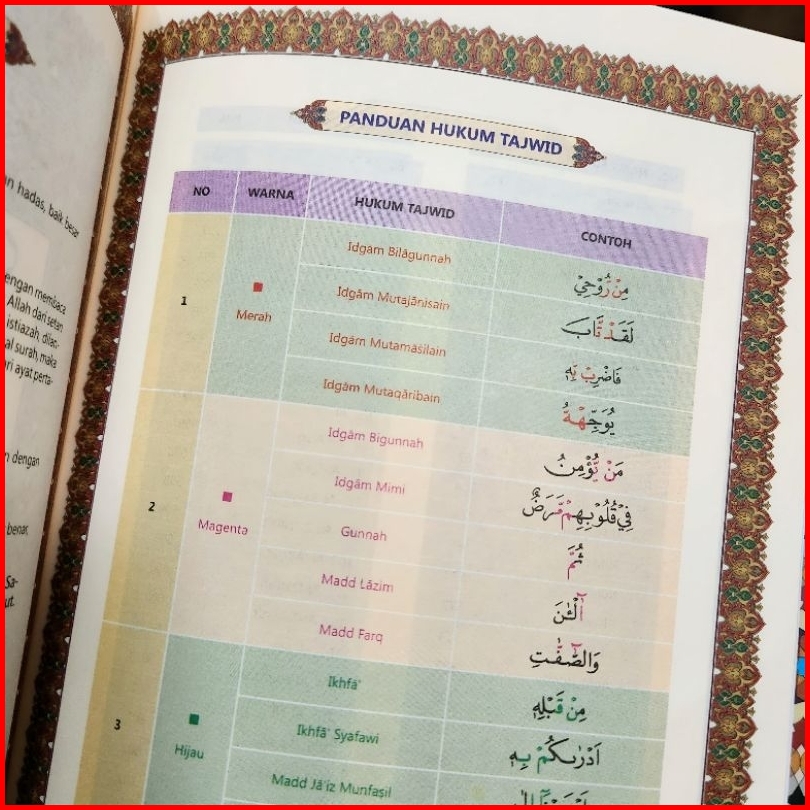 n hadas, baik besar
engan membaca
Allah dari setan
istiazah, dilan-
al surah, maka
ri ayat perta-
n dengan
benar,
Sa-
ut.
PANDUAN HUKUM TAJWID
NO WARNA HUKUM TAJWID CONTOH
1 Merah
Idgām Bilāgunnah مِنْ رُّوْحِيْ
Idgām Mutajānisain لَقَدْ تَّابَ
Idgām Mutamāṡilain فَاضْرِبْ بِّهٖ
Idgām Mutaqāribain يُوَجِّهْهُّ
2 Magenta
Idgām Bigunnah مَنْ يُّؤْمِنُ
Idgām Mimi فِيْ قُلُوْبِهِمْ مَّرَضٌ
Gunnah ثُمَّ
Madd Lāzim آٰلْـٰٔنَ
Madd Farq وَالصّٰۤفّٰتِ
3 Hijau
Ikhfā' مِنْ قَبْلِهٖ
Ikhfā' Syafawi اَدْرٰىكُمْ بِهٖ
Madd Jā'iz Munfaṣil